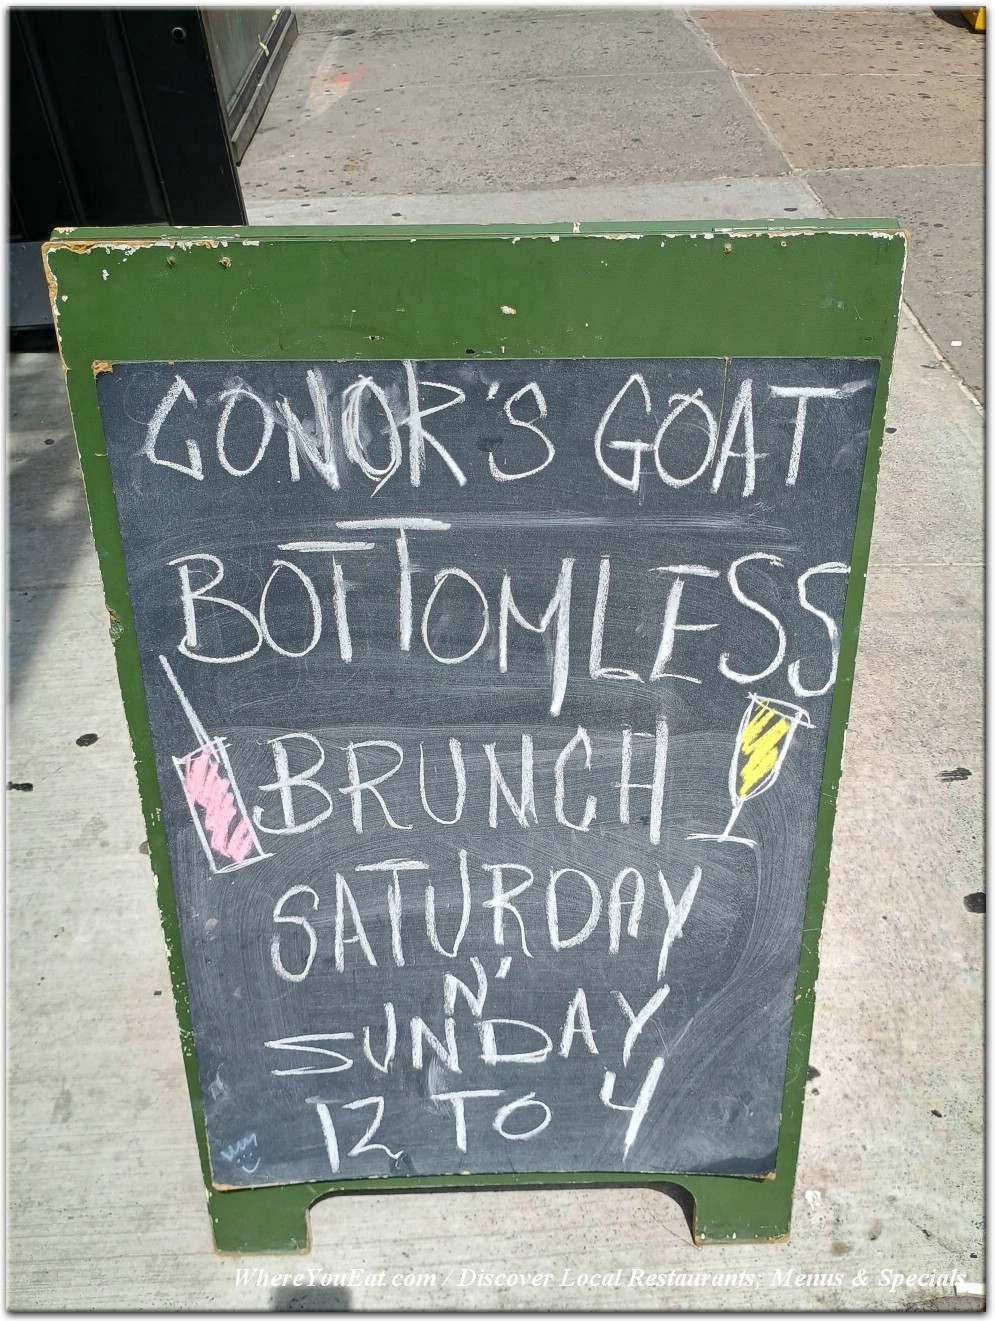 CONOR'S GOAT
BOTTOMLESS
BRUNCH
SATURDAY
N'
SUNDAY
12 TO 4
WhereYouEat.com / Discover Local Restaurants; Menus & Specials